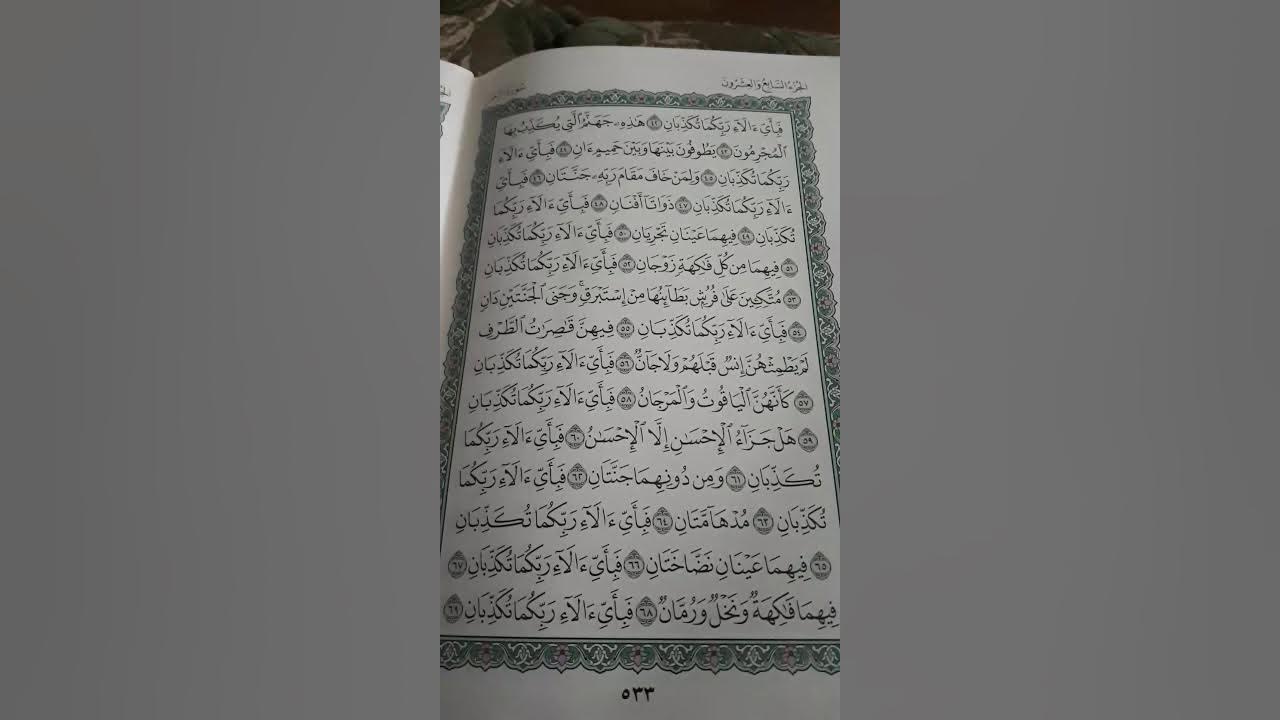 الجزء السابع والعشرون
فَبِأَيِّ ءَالَآءِ رَبِّكُمَا تُكَذِّبَانِ ٤٢ هَٰذِهِۦ جَهَنَّمُ ٱلَّتِي يُكَذِّبُ بِهَا
ٱلْمُجْرِمُونَ ٤٣ يَطُوفُونَ بَيْنَهَا وَبَيْنَ حَمِيمٍ ءَانٍ ٤٤ فَبِأَيِّ ءَالَآءِ
رَبِّكُمَا تُكَذِّبَانِ ٤٥ وَلِمَنْ خَافَ مَقَامَ رَبِّهِۦ جَنَّتَانِ ٤٦ فَبِأَيِّ
ءَالَآءِ رَبِّكُمَا تُكَذِّبَانِ ٤٧ ذَوَاتَآ أَفْنَانٍ ٤٨ فَبِأَيِّ ءَالَآءِ رَبِّكُمَا
تُكَذِّبَانِ ٤٩ فِيهِمَا عَيْنَانِ تَجْرِيَانِ ٥٠ فَبِأَيِّ ءَالَآءِ رَبِّكُمَا تُكَذِّبَانِ
٥١ فِيهِمَا مِن كُلِّ فَٰكِهَةٍ زَوْجَانِ ٥٢ فَبِأَيِّ ءَالَآءِ رَبِّكُمَا تُكَذِّبَانِ
٥٣ مُتَّكِـِٔينَ عَلَىٰ فُرُشٍۭ بَطَآئِنُهَا مِنْ إِسْتَبْرَقٍۚ وَجَنَى ٱلْجَنَّتَيْنِ دَانٍ
٥٤ فَبِأَيِّ ءَالَآءِ رَبِّكُمَا تُكَذِّبَانِ ٥٥ فِيهِنَّ قَٰصِرَٰتُ ٱلطَّرْفِ
لَمْ يَطْمِثْهُنَّ إِنسٌ قَبْلَهُمْ وَلَا جَآنٌّ ٥٦ فَبِأَيِّ ءَالَآءِ رَبِّكُمَا تُكَذِّبَانِ
٥٧ كَأَنَّهُنَّ ٱلْيَاقُوتُ وَٱلْمَرْجَانُ ٥٨ فَبِأَيِّ ءَالَآءِ رَبِّكُمَا تُكَذِّبَانِ
٥٩ هَلْ جَزَآءُ ٱلْإِحْسَٰنِ إِلَّا ٱلْإِحْسَٰنُ ٦٠ فَبِأَيِّ ءَالَآءِ رَبِّكُمَا
تُكَذِّبَانِ ٦١ وَمِن دُونِهِمَا جَنَّتَانِ ٦٢ فَبِأَيِّ ءَالَآءِ رَبِّكُمَا
تُكَذِّبَانِ ٦٣ مُدْهَآمَّتَانِ ٦٤ فَبِأَيِّ ءَالَآءِ رَبِّكُمَا تُكَذِّبَانِ
٦٥ فِيهِمَا عَيْنَانِ نَضَّاخَتَانِ ٦٦ فَبِأَيِّ ءَالَآءِ رَبِّكُمَا تُكَذِّبَانِ ٦٧
فِيهِمَا فَٰكِهَةٌ وَنَخْلٌ وَرُمَّانٌ ٦٨ فَبِأَيِّ ءَالَآءِ رَبِّكُمَا تُكَذِّبَانِ ٦٩
٥٣٣